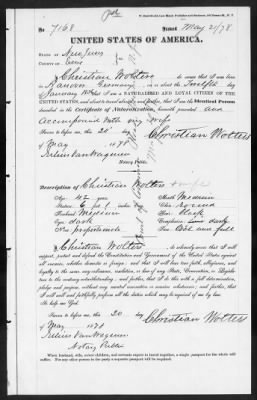 No 7168 Issued May 21/78
UNITED STATES OF AMERICA.
STATE OF New Jersey
COUNTY OF
I, Christian Wolters do swear that I was born
in Hanover Germany on the Twelfth day
of January that I am a NATURALIZED AND LOYAL CITIZEN OF
THE UNITED STATES, and about to travel abroad; and further, that I am the Identical Person
described in the Certificate of Naturalization, herewith presented and
Accompanied with my wife
Sworn to before me, this 20 day Christian Wolters
of May 1878
Julius Van Wagenen
Notary Public.
Description of Christian Wolters
Age: 42 year Mouth: Medium
Stature: 5 ft Chin: round
Forehead: Medium Hair: black
Eyes: dark Complexion: dark
Nose: proportionate Face: full
I, Christian Wolters do solemnly swear that I will
support, protect and defend the Constitution and Government of the United States against
all enemies, whether domestic or foreign; and that I will bear true faith, allegiance, and
loyalty to the same, any ordinance, resolution, or law of any State, Convention, or Legislature
to the contrary notwithstanding; and further, that I do this with a full determination,
pledge and purpose, without any mental reservation or evasion whatsoever; and further, that
I will well and faithfully perform all the duties which may be required of me by law.
So help me God.
Sworn to before me, this 20 day Christian Wolters
of May 1878
Julius Van Wagenen
Notary Public
When husband, wife, minor children, and servants expect to travel together, a single passport for the whole will
suffice. For any other person in the party a separate passport will be required.